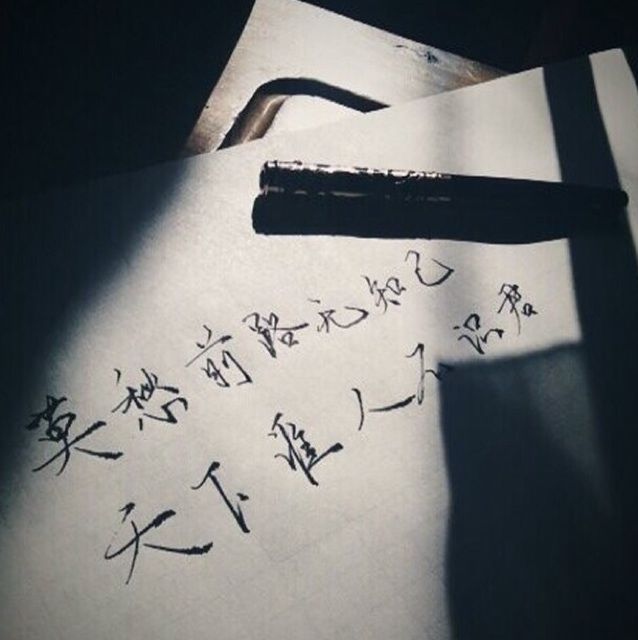 莫愁前路无知己
天下谁人不识君